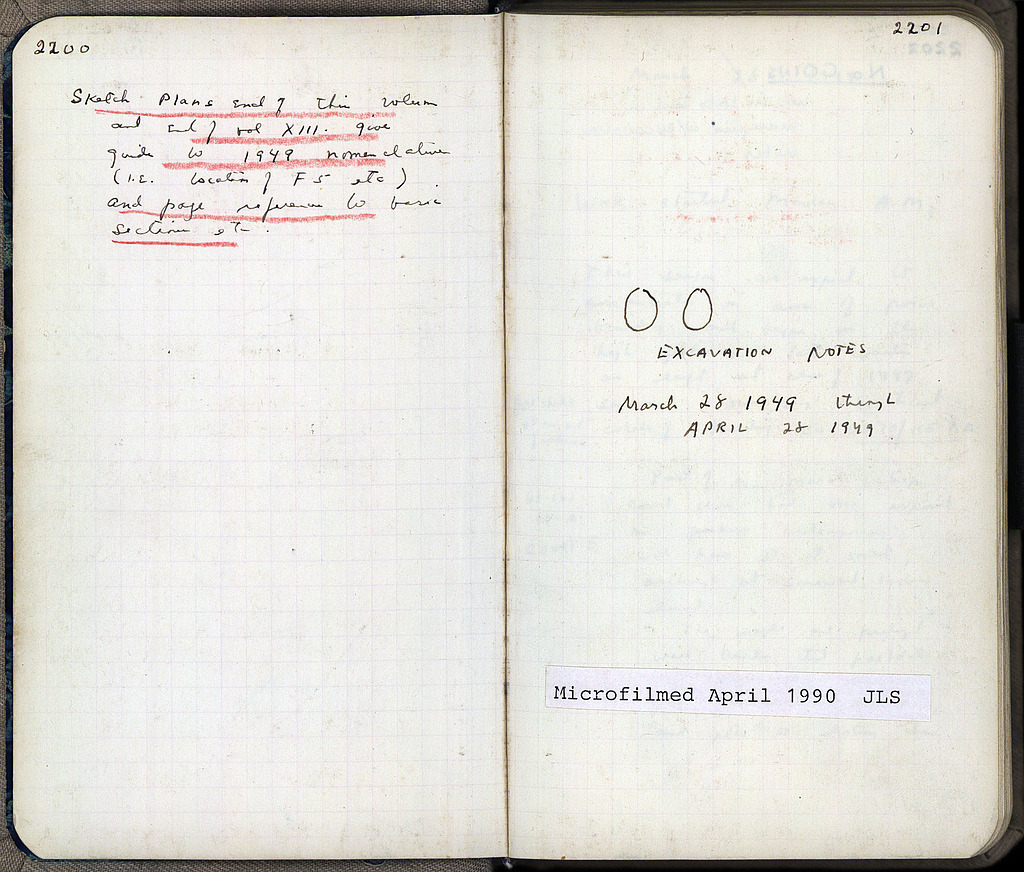 2200
Sketch Plans end of this volum
and end of vol XIII. give
guide to 1949 nomenclature
(i.e. location of F 5 etc)
and page reference to basic
sections etc.
2201
OO
EXCAVATION NOTES
March 28 1949 through
APRIL 28 1949
Microfilmed April 1990 JLS